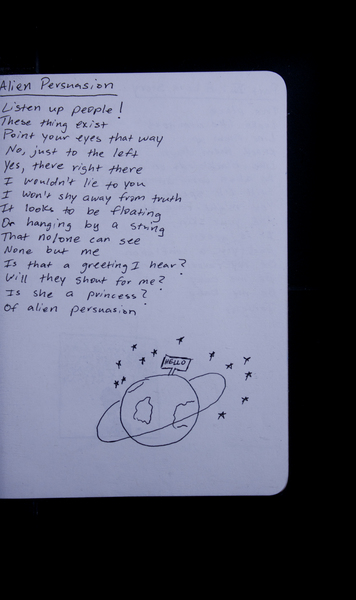 Alien Persuasion
Listen up people!
These thing exist
Point your eyes that way
No, just to the left
Yes, there right there
I wouldn't lie to you
I won't shy away from truth
It looks to be floating
Or hanging by a string
That no/one can see
None but me
Is that a greeting I hear?
Will they shout for me?
Is she a princess?
Of alien persuasion
HELLO